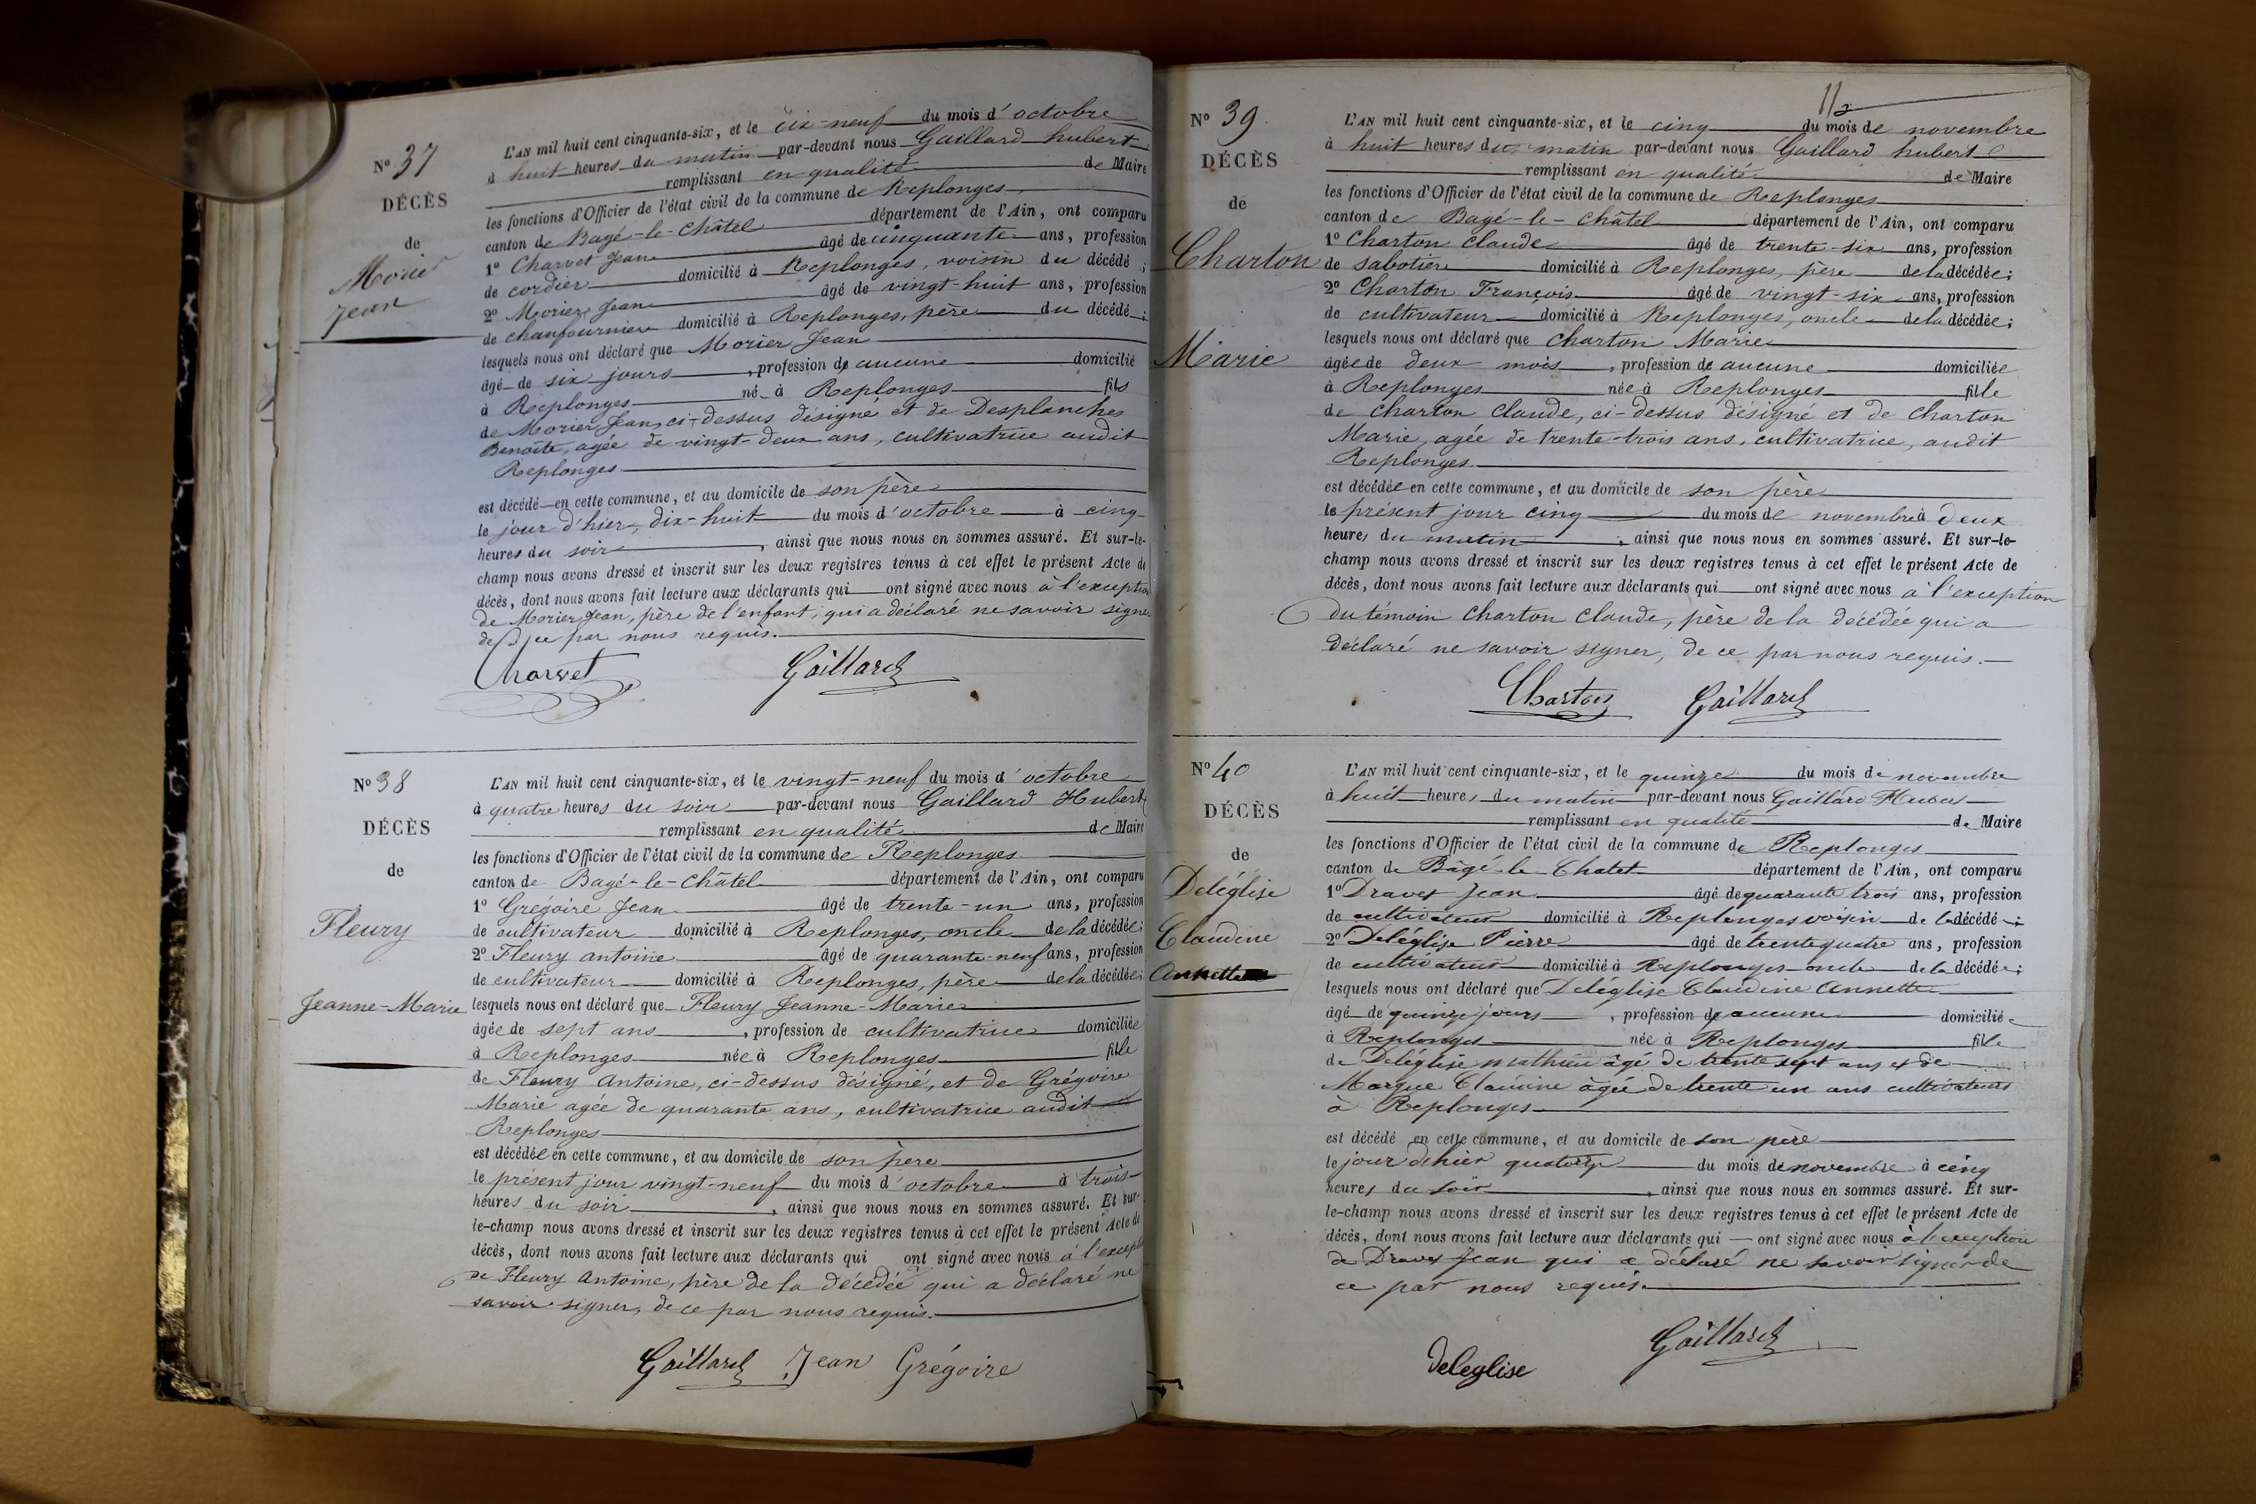 N° 37
DÉCÈS
de
Morier
Jean
L'AN mil huit cent cinquante-six, et le dix-neuf du mois d'octobre
à huit heures du matin par-devant nous Gaillard hubert
remplissant en qualité de Maire
les fonctions d'Officier de l'état civil de la commune de Replonges
canton de Bagé-le-Châtel département de l'Ain, ont comparu
1° Charvet Jean âgé de cinquante ans, profession
de cordier domicilié à Replonges, voisin du décédé ;
2° Morier Jean âgé de vingt-huit ans, profession
de chaufournier domicilié à Replonges, père du décédé ;
lesquels nous ont déclaré que Morier Jean
âgé de six jours, profession de aucune domicilié
à Replonges né à Replonges fils
de Morier Jean, ci-dessus désigné et de Desplanches
Benoîte, agée de vingt-deux ans, cultivatrice audit
Replonges
est décédé en cette commune, et au domicile de son père
le jour d'hier, dix-huit du mois d'octobre à cinq
heures du soir, ainsi que nous nous en sommes assuré. Et sur-le-
champ nous avons dressé et inscrit sur les deux registres tenus à cet effet le présent Acte de
décès, dont nous avons fait lecture aux déclarants qui ont signé avec nous à l'exception
de Morier Jean, père de l'enfant, qui a déclaré ne savoir signer
de ce par nous requis.
Charvet Gaillard
N° 38
DÉCÈS
de
Fleury
Jeanne-Marie
L'AN mil huit cent cinquante-six, et le vingt-neuf du mois d'octobre
à quatre heures du soir par-devant nous Gaillard Hubert
remplissant en qualité de Maire
les fonctions d'Officier de l'état civil de la commune de Replonges
canton de Bagé-le-Châtel département de l'Ain, ont comparu
1° Grégoire Jean âgé de trente-un ans, profession
de cultivateur domicilié à Replonges, oncle de la décédée ;
2° Fleury antoine âgé de quarante-neuf ans, profession
de cultivateur domicilié à Replonges, père de la décédée ;
lesquels nous ont déclaré que Fleury Jeanne-Marie
âgée de sept ans, profession de cultivatrice domiciliée
à Replonges née à Replonges fille
de Fleury Antoine, ci-dessus désigné, et de Grégoire
Marie agée de quarante ans, cultivatrice audit
Replonges
est décédée en cette commune, et au domicile de son père
le présent jour vingt-neuf du mois d'octobre à trois
heures du soir, ainsi que nous nous en sommes assuré. Et sur-
le-champ nous avons dressé et inscrit sur les deux registres tenus à cet effet le présent Acte de
décès, dont nous avons fait lecture aux déclarants qui ont signé avec nous à l'exception
de Fleury Antoine, père de la décédée qui a déclaré ne
savoir signer, de ce par nous requis.
Gaillard Jean Grégoire
112
N° 39
DÉCÈS
de
Charton
Marie
L'AN mil huit cent cinquante-six, et le cinq du mois de novembre
à huit heures du matin par-devant nous Gaillard hubert
remplissant en qualité de Maire
les fonctions d'Officier de l'état civil de la commune de Replonges
canton de Bagé-le-Châtel département de l'Ain, ont comparu
1° Charton Claude âgé de trente-six ans, profession
de sabotier domicilié à Replonges, père de la décédée ;
2° Charton François âgé de vingt-six ans, profession
de cultivateur domicilié à Replonges, oncle de la décédée ;
lesquels nous ont déclaré que Charton Marie
âgée de deux mois, profession de aucune domiciliée
à Replonges née à Replonges fille
de Charton Claude, ci-dessus désigné et de Charton
Marie, agée de trente-trois ans, cultivatrice, audit
Replonges
est décédée en cette commune, et au domicile de son père
le présent jour cinq du mois de novembre à deux
heures du matin, ainsi que nous nous en sommes assuré. Et sur-le-
champ nous avons dressé et inscrit sur les deux registres tenus à cet effet le présent Acte de
décès, dont nous avons fait lecture aux déclarants qui ont signé avec nous à l'exception
du témoin Charton Claude, père de la décédée qui a
déclaré ne savoir signer, de ce par nous requis.
Charton Gaillard
N° 40
DÉCÈS
de
Deléglise
Claudine
Annette
L'AN mil huit cent cinquante-six, et le quinze du mois de novembre
à huit heures du matin par-devant nous Gaillard Hubert
remplissant en qualité de Maire
les fonctions d'Officier de l'état civil de la commune de Replonges
canton de Bagé-le-Chatel département de l'Ain, ont comparu
1° Jean âgé de quarante trois ans, profession
de cultivateur domicilié à Replonges voisin de la décédé ;
2° Deléglise Pierre âgé de trente quatre ans, profession
de cultivateur domicilié à Replonges oncle de la décédée ;
lesquels nous ont déclaré que Deléglise Claudine Annette
âgé de quinze jours, profession de aucune domiciliée
à Replonges née à Replonges fille
de Deléglise Mathieu âgé de trente sept ans et de
Marque Claudine âgée de trente un ans cultivateurs
à Replonges
est décédé en cette commune, et au domicile de son père
le jour d'hier quatorze du mois de novembre à cinq
heures du soir, ainsi que nous nous en sommes assuré. Et sur-
le-champ nous avons dressé et inscrit sur les deux registres tenus à cet effet le présent Acte de
décès, dont nous avons fait lecture aux déclarants qui ont signé avec nous à l'exception
de Jean qui a déclaré ne savoir signer de
ce par nous requis.
Deleglise Gaillard